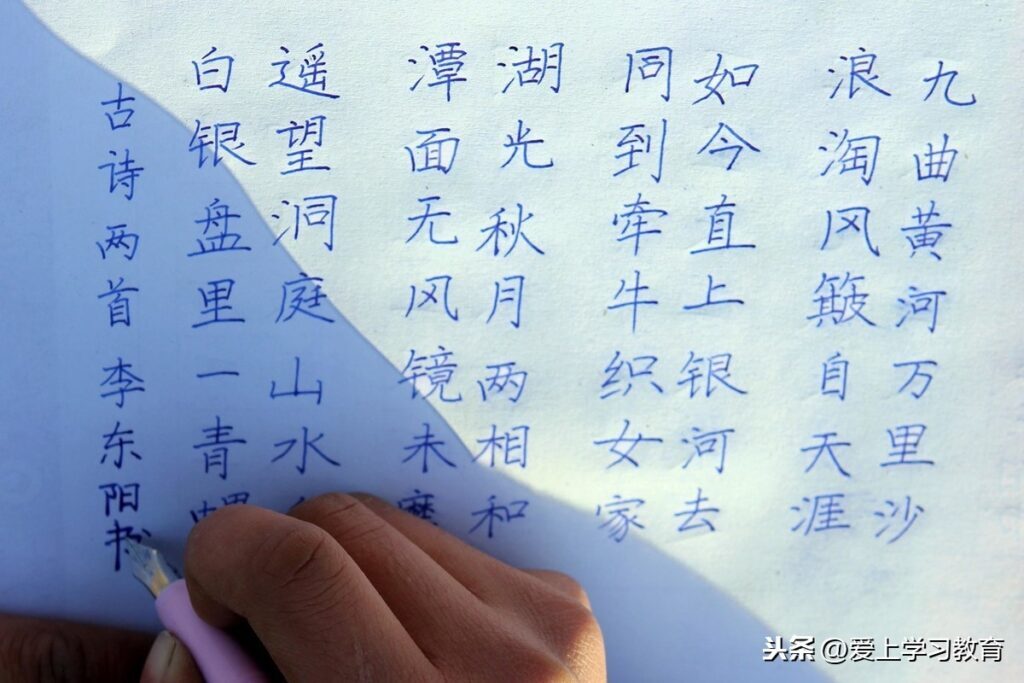 九曲黄河万里沙
浪淘风簸自天涯
如今直上银河去
同到牵牛织女家
湖光秋月两相和
潭面无风镜未磨
遥望洞庭山水
白银盘里一青螺
古诗两首 李东阳书
头条 @爱上学习教育